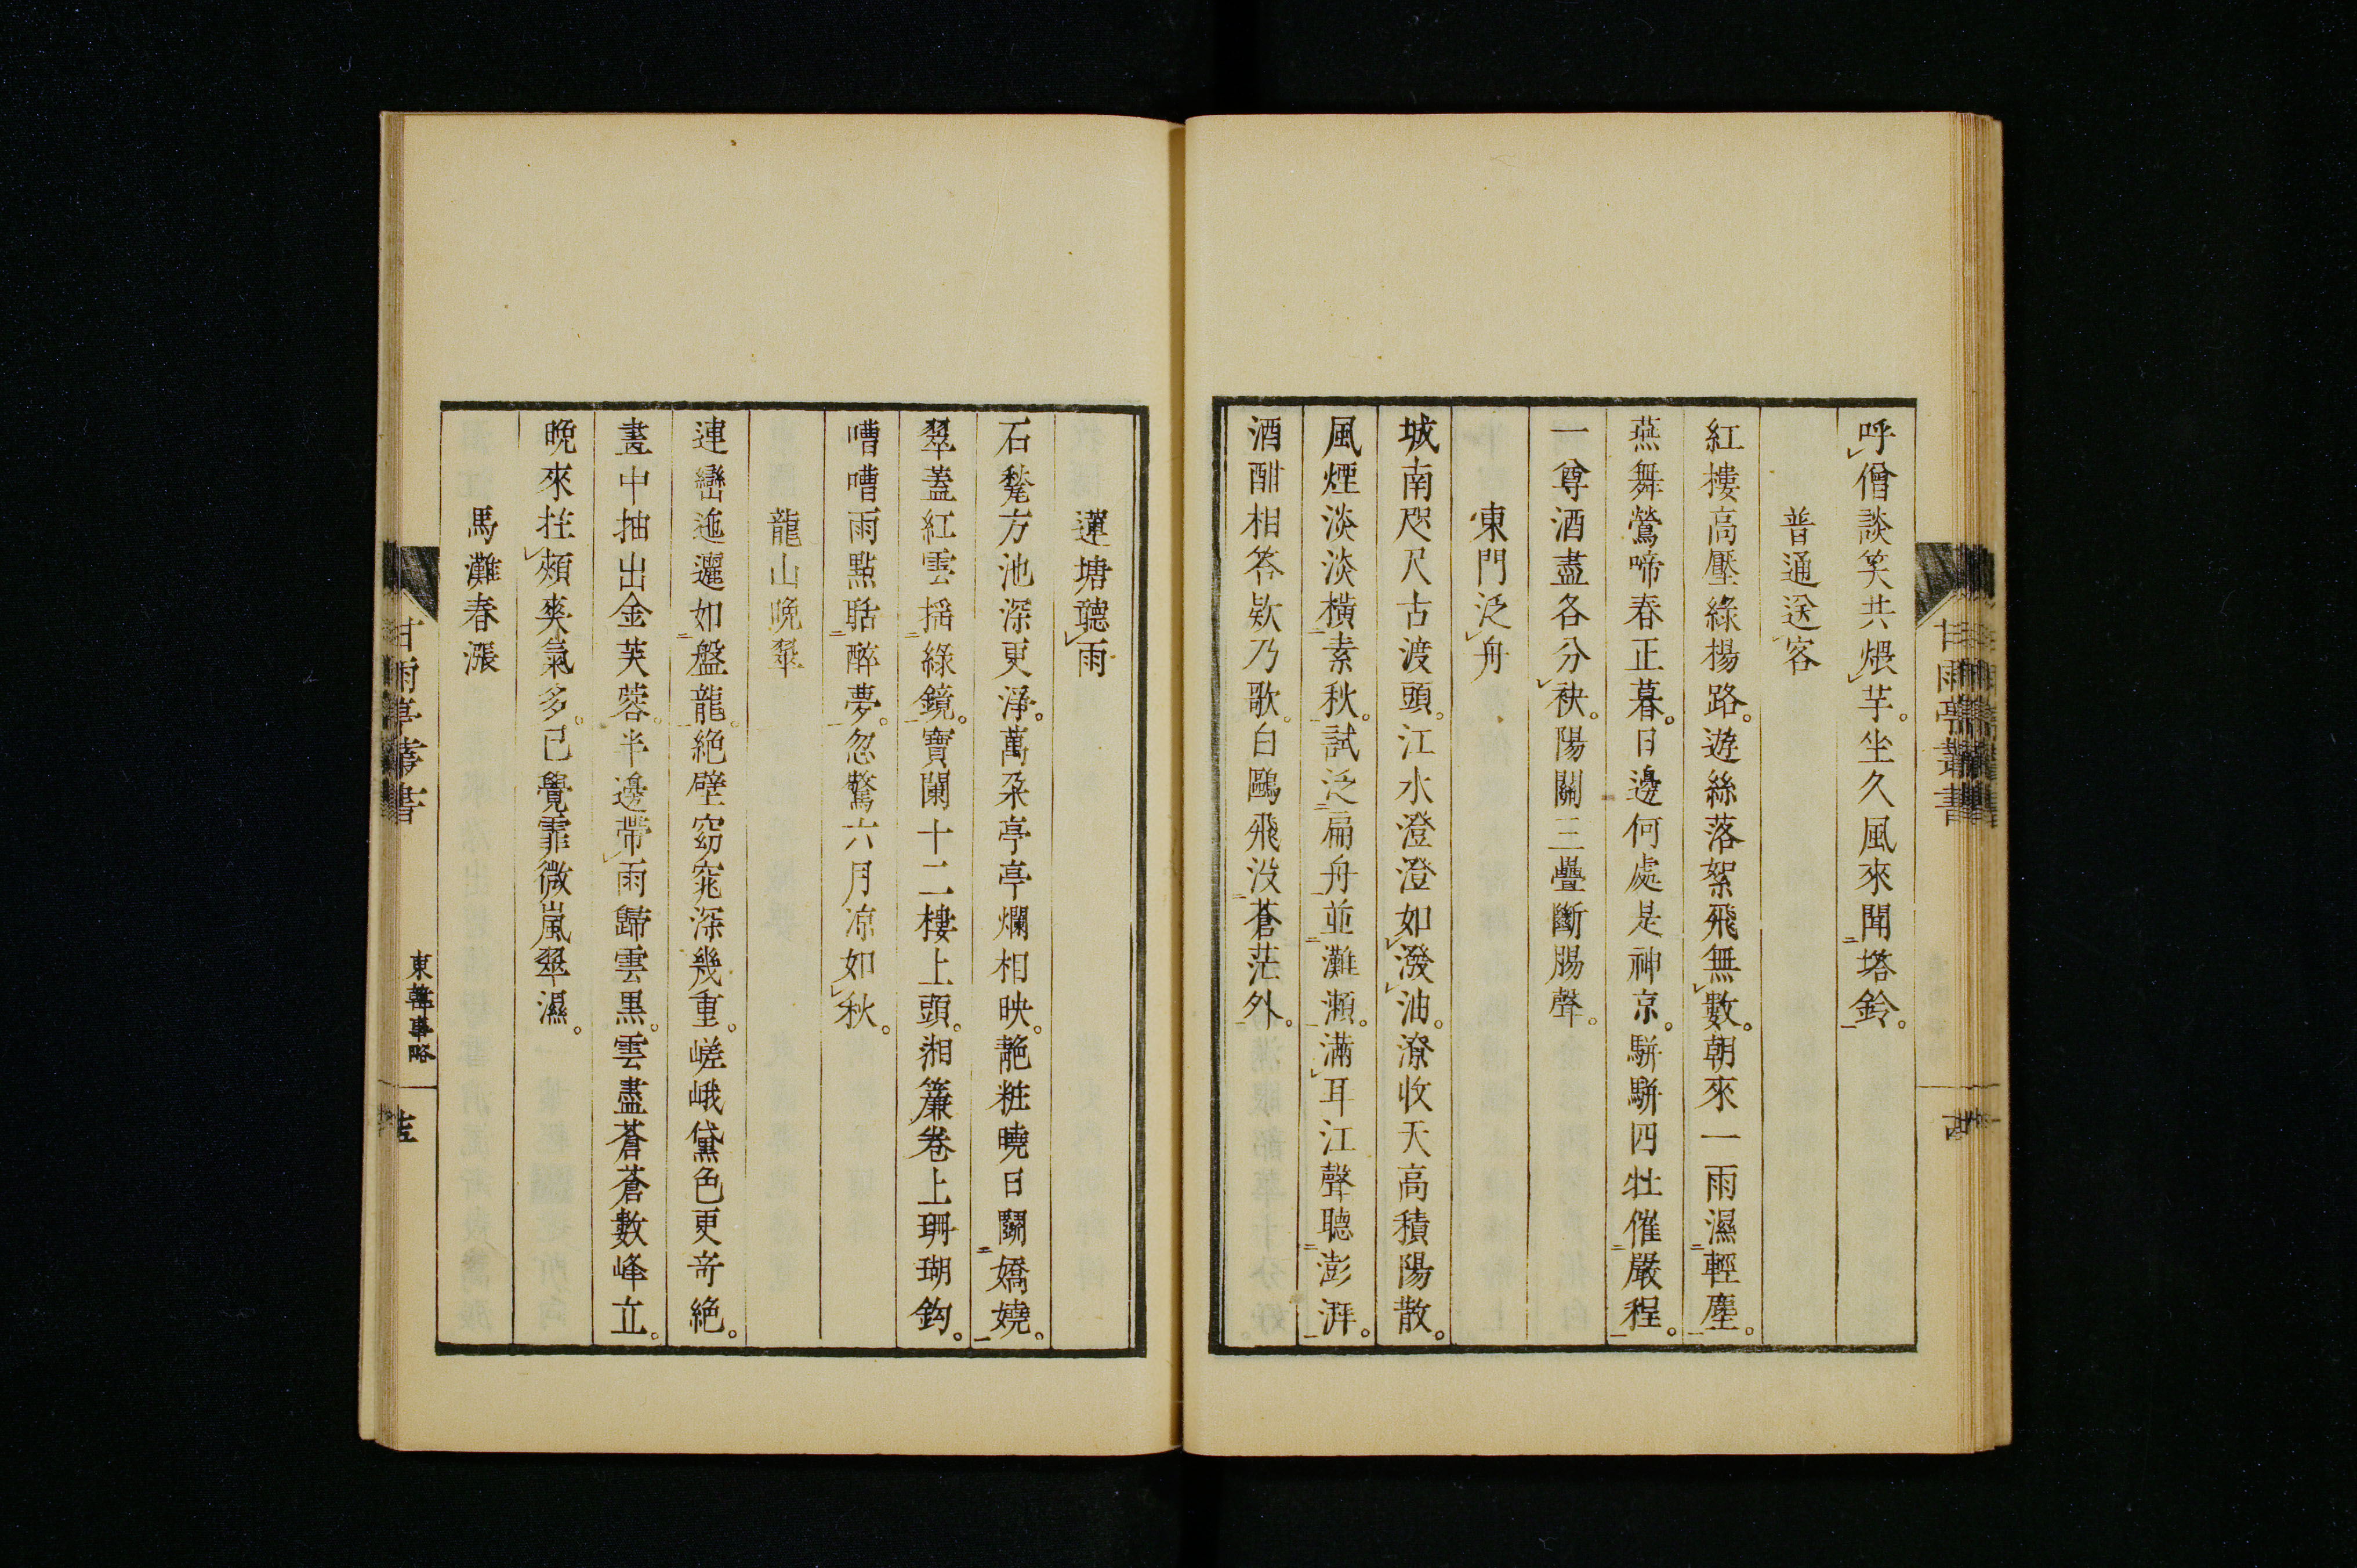 呼僧談笑共煨芋。坐久風來聞塔鈴。
普通送客
紅樓高壓綠楊路。遊絲落絮飛無數。朝來一雨濕輕塵。
燕舞鶯啼春正暮。日邊何處是神京。騈騈四牡催嚴程。
一尊酒盡各分袂。陽關三疊斷腸聲。
東門泛舟
城南咫尺古渡頭。江水澄澄如潑油。潦收天高積陽散。
風煙淡淡橫素秋。試泛扁舟並灘瀨。滿耳江聲聽澎湃。
酒酣相答欸乃歌。白鷗飛沒蒼茫外。
甘雨亭叢書
蓮塘聽雨
石甃方池深更淨。萬朶亭亭爛相映。靘粧曉日鬭嬌嬈。
翠蓋紅雲搖綠鏡。寶闌十二樓上頭。湘簾卷上珊瑚鈎。
嘈嘈雨點聒醉夢。忽驚六月凉如秋。
龍山晚翠
連巒迤邐如盤龍。絕壁窈窕深幾重。嵯峨黛色更奇絕。
畫中抽出金芙蓉。半邊帶雨歸雲黑。雲盡蒼蒼數峰立。
晚來拄頰爽氣多。已覺霏微嵐翠濕。
馬灘春漲
甘雨亭叢書
東韓事略